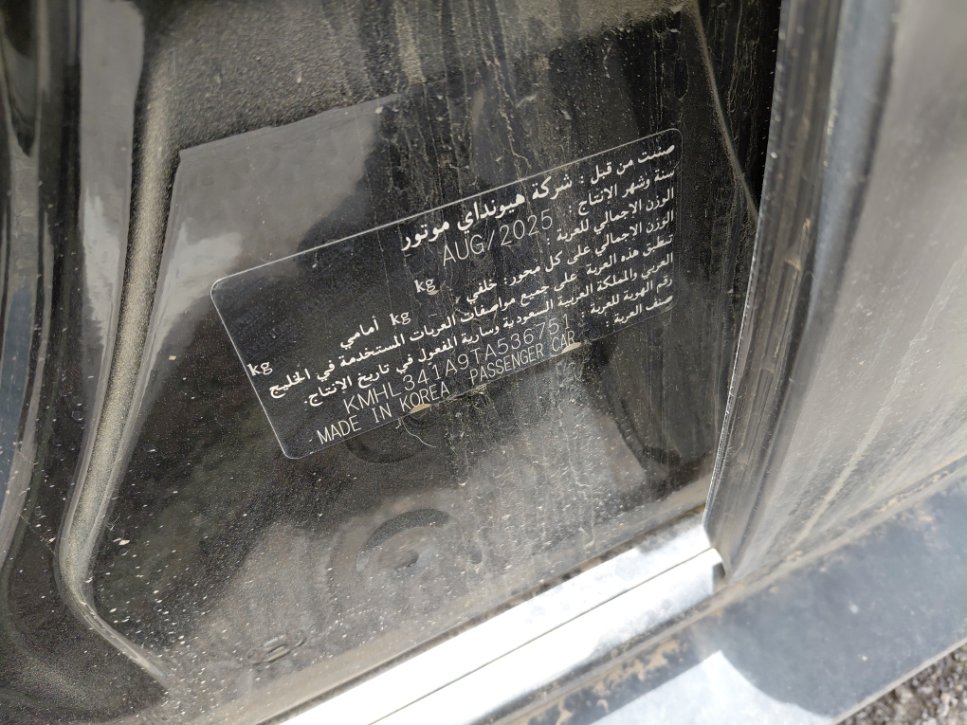 صنعت من قبل : شركة هيونداي موتور
سنة وشهر الانتاج : AUG/2025
الوزن الاجمالي للعربة : kg
الوزن الاجمالي على كل محور: خلفي kg أمامي kg
تنطبق هذه العربة على جميع مواصفات العربات المستخدمة في الخليج
العربي والمملكة العربية السعودية وسارية المفعول في تاريخ الانتاج.
رقم الهوية للعربة : KMHL341A9TA536751
صنف العربة : PASSENGER CAR MADE IN KOREA